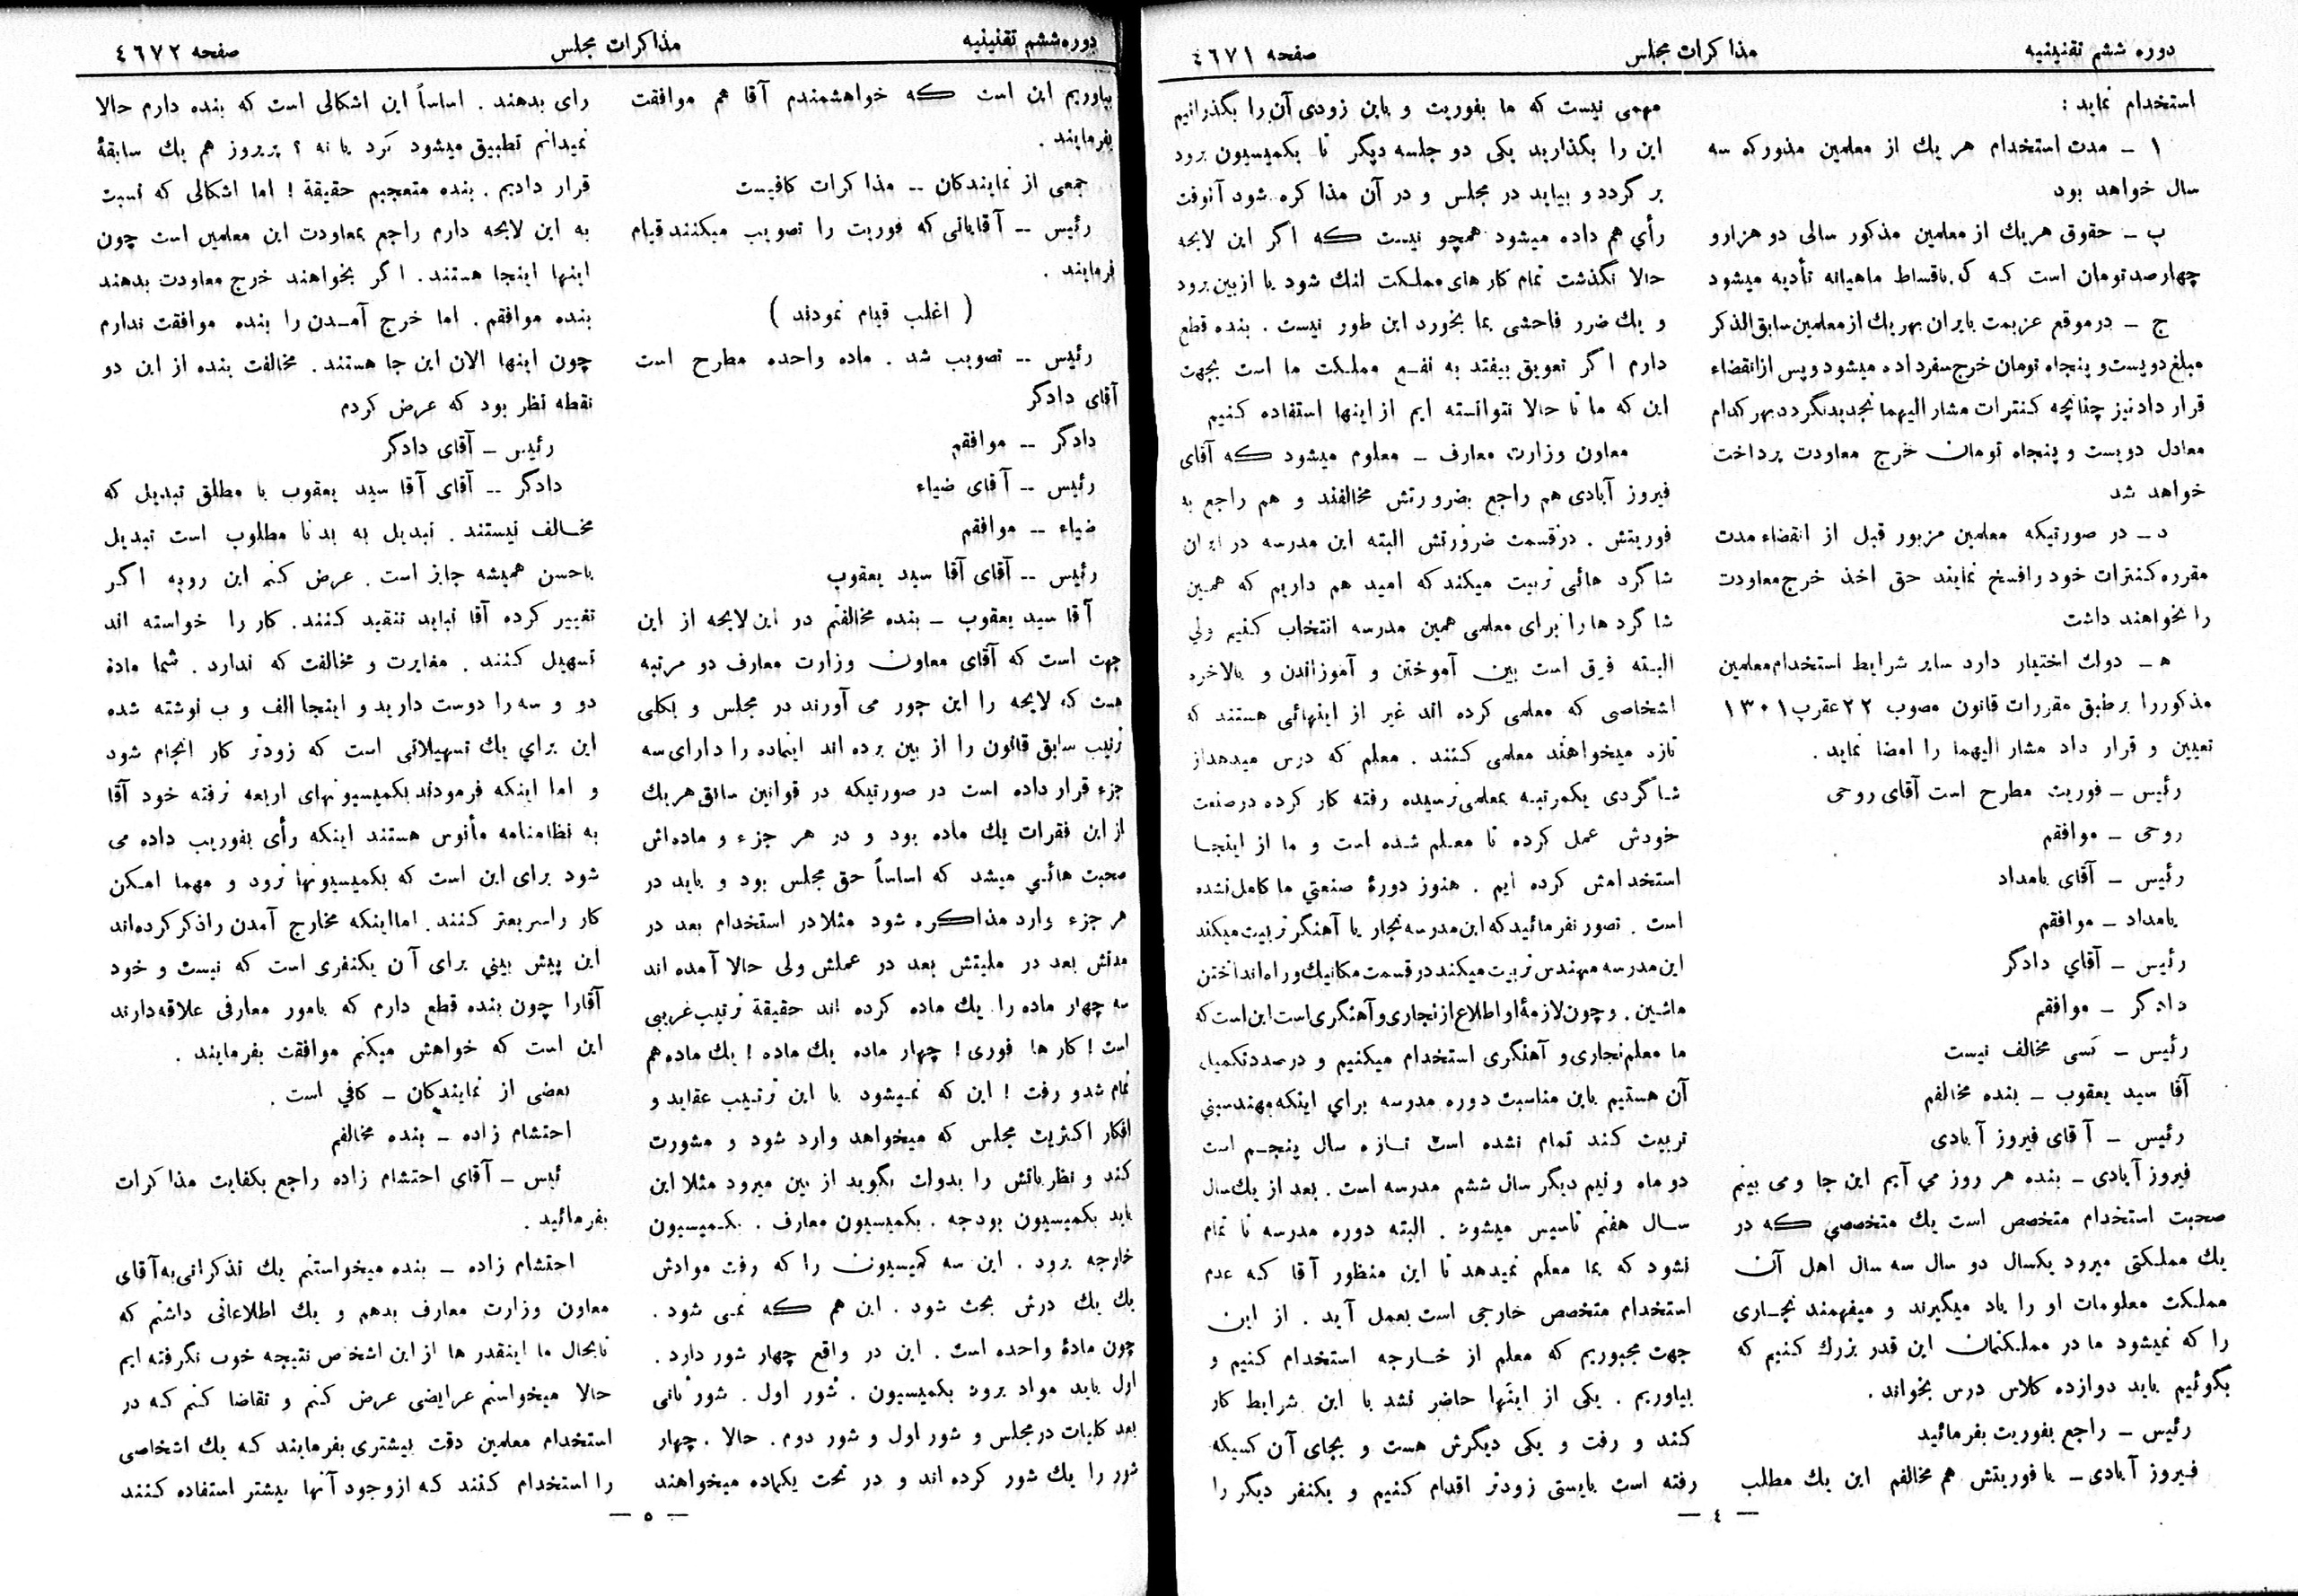 دوره ششم تقنینیه
مذاکرات مجلس
صفحه ٤٦٧١
استخدام نماید :
١ ـ مدت استخدام هر یك از معلمین مذور که سه
سال خواهد بود
ب ـ حقوق هر یك از معلمین مذکور سالی دو هزار و
چهار صد تومان است که که باقساط ماهیانه تأدیه میشود
ج ـ در موقع عزیمت بایران بهر یك از معلمین سابق الذکر
مبلغ دویست و پنجاه تومان خرج سفر داده میشود و پس از انقضاء
قرار داد نیز چنانچه کنترات مشار الیهما تجدید نگردد بهر کدام
معادل دویست و پنجاه تومان خرج معاودت پرداخت
خواهد شد
د ـ در صورتیکه معلمین مزبور قبل از انقضاء مدت
مقرره کنترات خود را فسخ نمایند حق اخذ خرج معاودت
را نخواهند داشت
ه ـ دولت اختیار دارد سایر شرایط استخدام معلمین
مذکور را بر طبق مقررات قانون مصوب ٢٢ عقرب ١٣٠١
تعیین و قرار داد مشار الیهما را امضا نماید .
رئیس ـ فوریت مطرح است آقای روحی
روحی ـ موافقم
رئیس ـ آقای بامداد
بامداد ـ موافقم
رئیس ـ آقاي دادگر
دادگر ـ موافقم
رئیس ـ کسی مخالف نیست
آقا سید یعقوب ـ بنده مخالفم
رئیس ـ آقای فیروز آبادی
فیروز آبادی ـ بنده هر روز می آیم این جا و می بینم
صحبت استخدام متخصص است یك متخصصي که در
یك مملکتی میرود یکسال دو سال سه سال اهل آن
مملکت معلومات او را یاد میگیرند و میفهمند نجاری
را که نمیشود ما در مملکتمان این قدر بزرك کنیم که
بگوئیم باید دوازده کلاس درس بخواند .
رئیس ـ راجع بفوریت بفرمائید
فیروز آبادی ـ با فوریتش هم مخالفم این یك مطلب
مهمی نیست که ما بفوریت و باین زودی آن را بگذرانیم
این را بگذارید یکی دو جلسه دیگر تا بکمیسیون برود
بر گردد و بیاید در مجلس و در آن مذاکره شود آنوقت
رأي هم داده میشود همچو نیست که اگر این لایحه
حالا نگذشت تمام کار های مملکت لنك شود یا از بین برود
و یك ضرر فاحشی بما بخورد این طور نیست . بنده قطع
دارم اگر تعویق بیفتد به نفع مملکت ما است بجهت
این که ما تا حالا نتوانسته ایم از اینها استفاده کنیم
معاون وزارت معارف ـ معلوم میشود که آقای
فیروز آبادی هم راجع بضرورتش مخالفند و هم راجع به
فوریتش . در قسمت ضرورتش البته این مدرسه در ایران
شاگرد هائی تربیت میکند که امید هم داریم که همین
شاگرد ها را برای معلمی همین مدرسه انتخاب کنیم ولي
البته فرق است بین آموختن و آموزاندن و بالاخره
اشخاصی که معلمی کرده اند غیر از اینهائی هستند که
تازه میخواهند معلمی کنند . معلم که درس میدهد از
شاگردی یکمرتبه بمعلمی نرسیده رفته کار کرده در صنعت
خودش عمل کرده تا معلم شده است و ما از اینجا
استخدامش کرده ایم . هنوز دورهٔ صنعتي ما کامل نشده
است . تصور نفرمائید که این مدرسه نجار یا آهنگر تربیت میکند
این مدرسه مهندس تربیت میکند در قسمت مکانیك و راه انداختن
ماشین . و چون لازمهٔ او اطلاع از نجاری و آهنگری است این است که
ما معلم نجاری و آهنگری استخدام میکنیم و در صدد تکمیل
آن هستیم باین مناسبت دوره مدرسه براي اینکه مهندسینی
تربیت کند تمام نشده است تازه سال پنجم است
دو ماه و نیم دیگر سال ششم مدرسه است . بعد از یك سال
سال هفتم تاسیس میشود . البته دوره مدرسه تا تمام
نشود که بما معلم نمیدهد تا این منظور آقا که عدم
استخدام متخصص خارجی است بعمل آید . از این
جهت مجبوریم که معلم از خارجه استخدام کنیم و
بیاوریم . یکی از اینها حاضر نشد با این شرایط کار
کند و رفت و یکی دیگرش هست و بجای آن کسیکه
رفته است بایستی زودتر اقدام کنیم و یکنفر دیگر را
— ٤ —
دوره ششم تقنینیه
مذاکرات مجلس
صفحه ٤٦٧٢
بیاوریم این است که خواهشمندم آقا هم موافقت
بفرمایند .
جمعی از نمایندگان -- مذاکرات کافیست
رئیس -- آقایانی که فوریت را تصویب میکنند قیام
فرمایند .
( اغلب قیام نمودند )
رئیس -- تصویب شد . ماده واحده مطرح است
آقای دادگر
دادگر -- موافقم
رئیس -- آقای ضیاء
ضیاء -- موافقم
رئیس -- آقای آقا سید یعقوب
آقا سید یعقوب ـ بنده مخالفم در این لایحه از این
جهت است که آقای معاون وزارت معارف دو مرتبه
هست که لایحه را این جور می آورند در مجلس و بکلی
ترتیب سابق قانون را از بین برده اند اینماده را دارای سه
جزء قرار داده است در صورتیکه در قوانین سابق هر یك
از این فقرات یك ماده بود و در هر جزء و ماده اش
صحبت هائي میشد که اساساً حق مجلس بود و باید در
هر جزء وارد مذاکره شود مثلا در استخدام بعد در
مدتش بعد در ملیتش بعد در عملش ولی حالا آمده اند
سه چهار ماده را یك ماده کرده اند حقیقة ترتیب غریبی
است ! کار ها فوری ! چهار ماده یك ماده ! یك ماده هم
تمام شد و رفت ! این که نمیشود با این ترتیب عقاید و
افکار اکثریت مجلس که میخواهد وارد شود و مشورت
کند و نظریاتش را بدولت بگوید از بین میرود مثلا این
باید بکمیسیون بودجه . بکمیسیون معارف . بکمیسیون
خارجه برود . این سه کمیسیون را که رفت موادش
یك یك درش بحث شود . این هم که نمی شود .
چون مادهٔ واحده است . این در واقع چهار شور دارد .
اول باید مواد برود بکمیسیون . شور اول . شور ثانی
بعد کلیات در مجلس و شور اول و شور دوم . حالا . چهار
شور را یك شور کرده اند و در تحت یکماده میخواهند
رای بدهند . اساساً این اشکالی است که بنده دارم حالا
نمیدانم تطبیق میشود کرد یا نه ؟ پریروز هم یك سابقهٔ
قرار دادیم . بنده متعجبم حقیقة ! اما اشکالی که نسبت
به این لایحه دارم راجع بمعاودت این معلمین است چون
اینها اینجا هستند . اگر بخواهند خرج معاودت بدهند
بنده موافقم . اما خرج آمدن را بنده موافقت ندارم
چون اینها الان این جا هستند . مخالفت بنده از این دو
نقطه نظر بود که عرض کردم
رئیس ـ آقای دادگر
دادگر -- آقای آقا سید یعقوب با مطلق تبدیل که
مخالف نیستند . تبدیل به بد نا مطلوب است تبدیل
باحسن همیشه جایز است . عرض کنم این رویه اگر
تغییر کرده آقا نباید تنقید کنند . کار را خواسته اند
تسهیل کنند . مغایرت و مخالفت که ندارد . شما مادة
دو و سه را دوست دارید و اینجا الف و ب نوشته شده
این براي یك تسهیلاتی است که زودتر کار انجام شود
و اما اینکه فرمودند بکمیسیونهای اربعه نرفته خود آقا
به نظامنامه مأنوس هستند اینکه رأی بفوریت داده می
شود برای این است که بکمیسیونها نرود و مهما امکن
کار را سریعتر کنند . اما اینکه مخارج آمدن را ذکر کرده اند
این پیش بیني برای آن یکنفری است که نیست و خود
آقا را چون بنده قطع دارم که بامور معارفی علاقه دارند
این است که خواهش میکنم موافقت بفرمایند .
بعضی از نمایندگان ـ کافي است .
احتشام زاده ـ بنده مخالفم
ئیس ـ آقای احتشام زاده راجع بکفایت مذاکرات
بفرمائید .
احتشام زاده ـ بنده میخواستم یك تذکراتی به آقای
معاون وزارت معارف بدهم و یك اطلاعاتی داشتم که
تابحال ما اینقدر ها از این اشخاص نتیجه خوب نگرفته ایم
حالا میخواستم عرایضی عرض کنم و تقاضا کنم که در
استخدام معلمین دقت بیشتری بفرمایند که یك اشخاصی
را استخدام کنند که از وجود آنها بیشتر استفاده کنند
— ٥ —